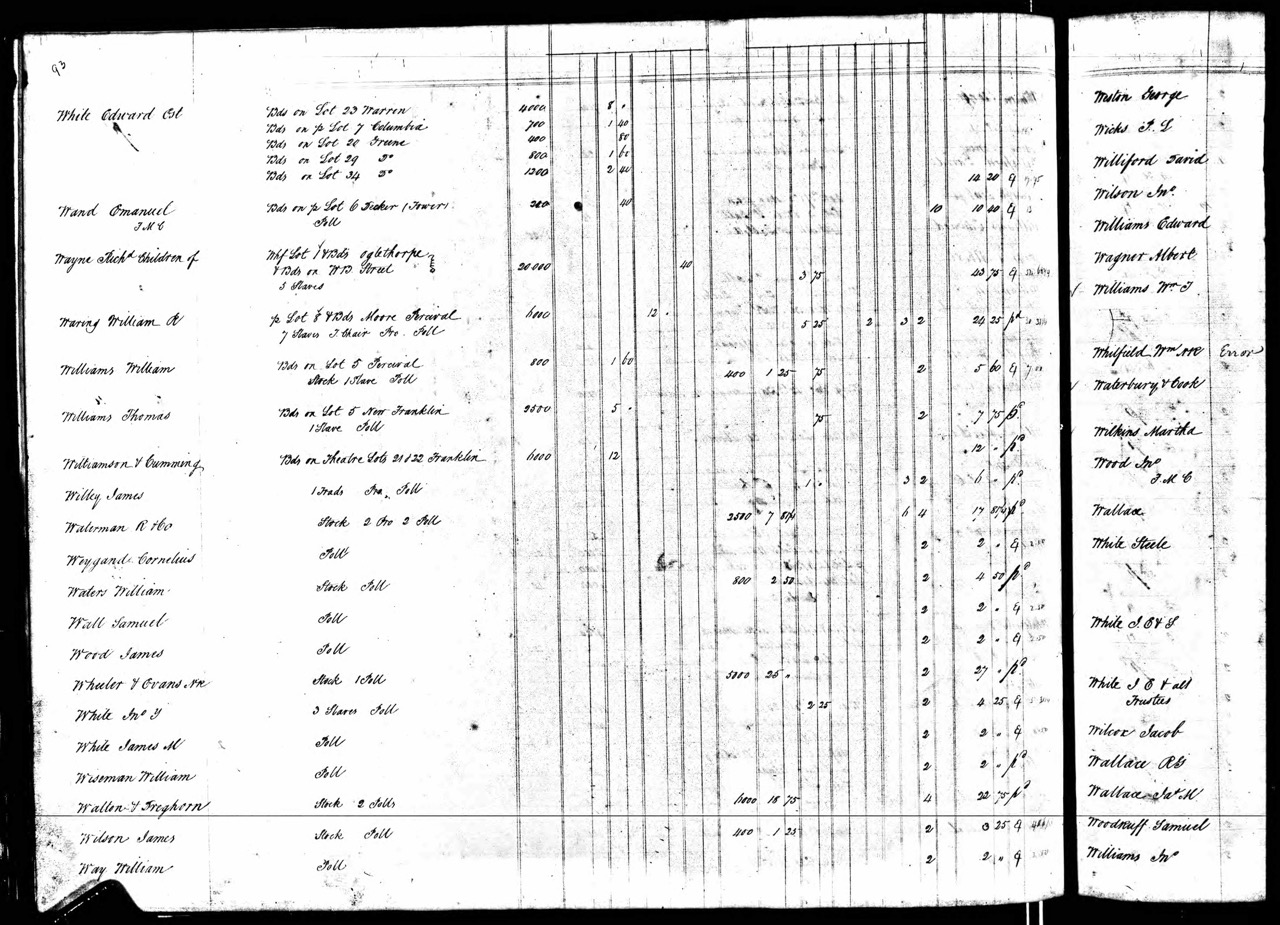 93
White Edward Est Bds on Lot 23 Warren 4000 8 "
Bds on p Lot 7 Columbia 700 1 40
Bds on Lot 20 Greene 400 80
Bds on Lot 29 Do 800 1 60
Bds on Lot 34 Do 1200 2 40 14 20
Wand Emanuel Bds on p Lot 6 Decker (Tower) 200 40 10 10 40
F.M.C Poll
Wayne Richd Children of Whf Lot 1 & Bds Oglethorpe
& Bds on W B Street 20000 40 3 75 43 75
5 Slaves
Waring William R p Lot 8 & Bds Moore Percival 6000 12 " 5 25 2 3 2 24 25 pd
7 Slaves 1 Chair Pro. Poll
Williams William Bds on Lot 5 Percival 800 1 60
Stock 1 Slave Poll 400 1 25 75 2 5 60
Williams Thomas Bds on Lot 5 New Franklin 2500 5 " 75 2 7 75 pd
1 Slave Poll
Williamson & Cumming Bds on Theatre Lots 21 & 22 Franklin 6000 12 12 " pd
Willey James 1 Trads Pro. Poll 1 " 3 2 6 " pd
Waterman R & Co Stock 2 Pro 2 Poll 2500 7 81¼ 6 4 17 81¼ pd
Weygand Cornelius Poll 2 2 "
Waters William Stock Poll 800 2 50 2 4 50 pd
Wall Samuel Poll 2 2 "
Wood James Poll 2 2 "
Wheeler & Evans NR Stock 1 Poll 5000 25 " 2 27 " pd
White Jno Y 3 Slaves Poll 2 25 2 4 25
White James M Poll 2 2 "
Wiseman William Poll 2 2 " pd
Walton & Freghorn Stock 2 Polls 6000 18 75 4 22 75 pd
Wilson James Stock Poll 400 1 25 2 3 25
Way William Poll 2 2 "
Weston George
Wicks F. L
Williford David
Wilson Jno.
Williams Edward
Wagner Albert
Williams Wm T
Whitfield Wm NR Error
Waterbury & Cook
Wilkins Martha
Wood Jno
F.M.C
Wallace
White Steele
White J. E & S
White J E & als
Trustees
Wilcox Jacob
Wallace RG
Wallace Jas M
Woodruff Samuel
Williams Jno